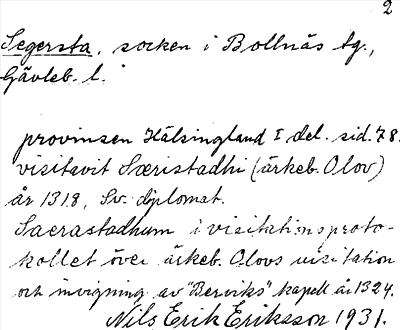 2
Segersta, socken i Bollnäs tg.,
Gävleb. l.
provinsen Hälsingland I del. sid. 78.
visitavit Særistadhi (ärkeb. Olov)
år 1318, Sv. diplomat.
Saerastadhum i visitationsproto-
kollet över ärkeb. Olovs visitation
och invigning av "Berviks" kapell år 1324.
Nils Erik Eriksson 1931.